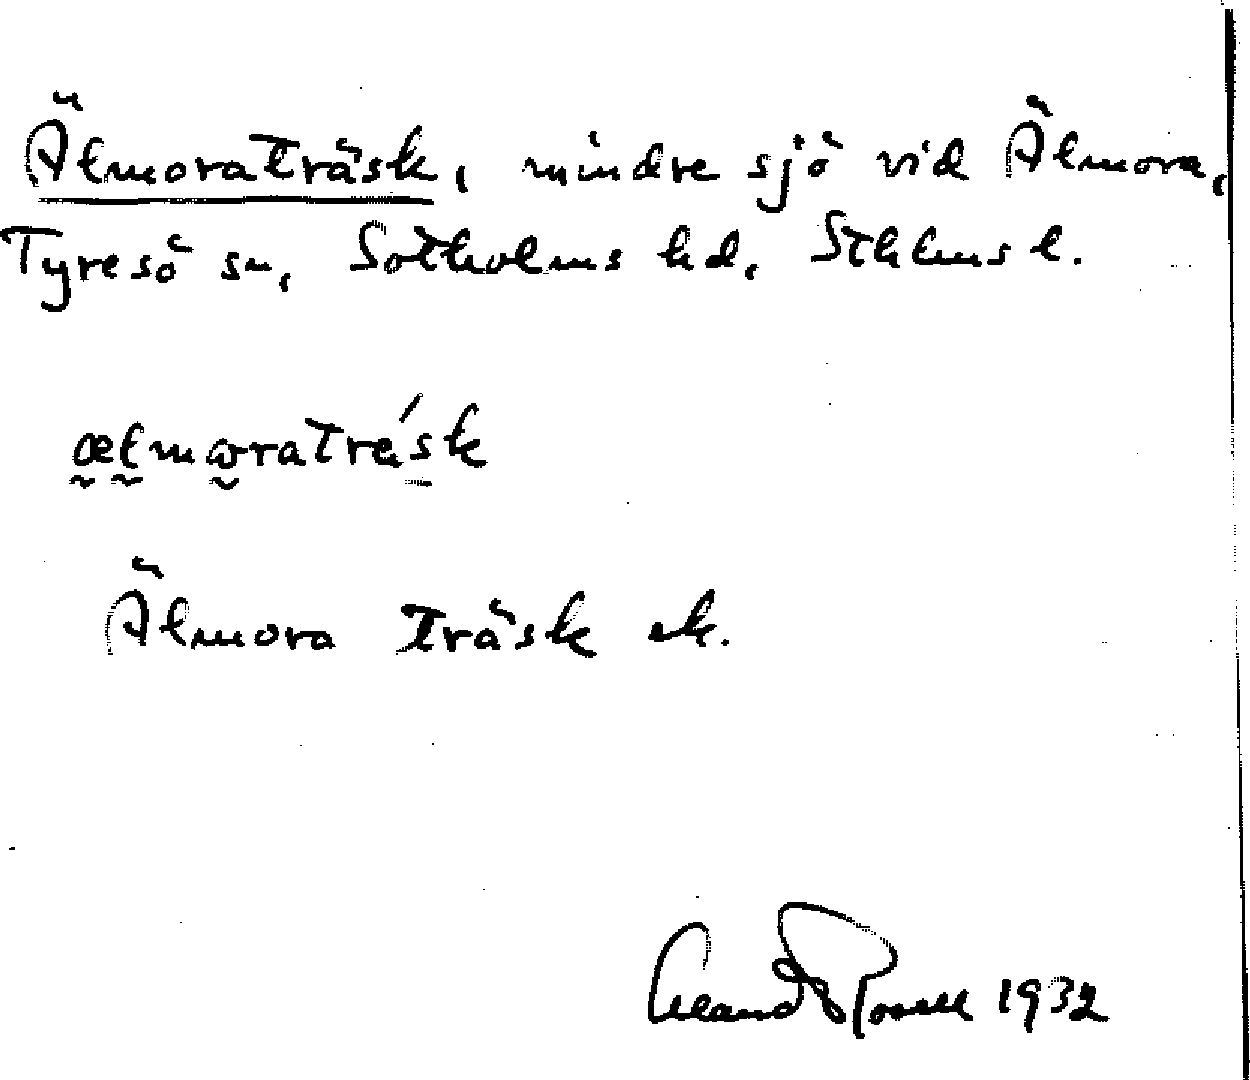 Älmoraträsk, mindre sjö vid Älmora,
Tyresö sn, Sotholms hd, Sthlms l.
ælmoraträsk
Älmora träsk ek.
Erland Rosell 1932